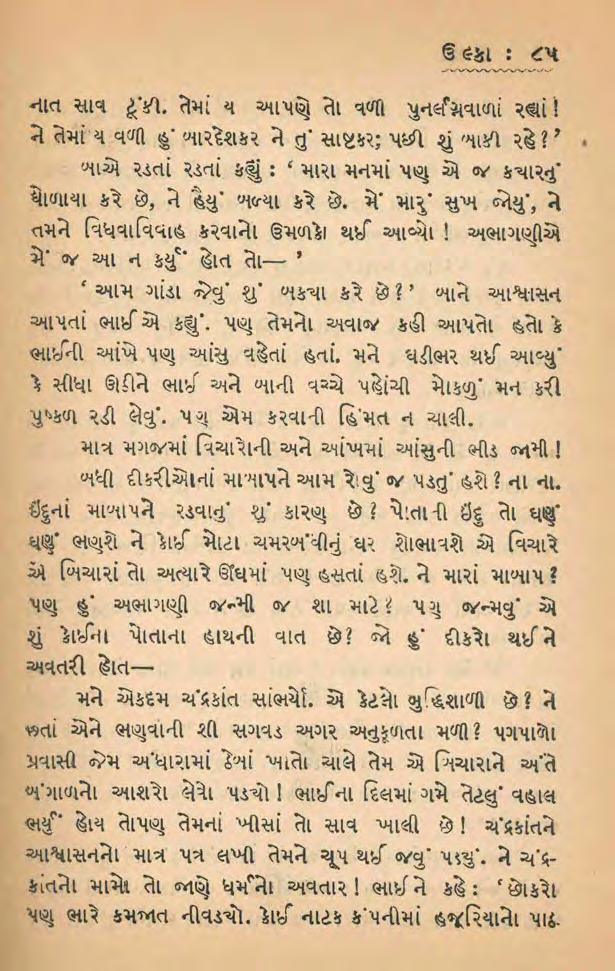 ઉલ્કા : ૮૫
નાત સાવ ટૂંકી. તેમાં ય આપણે તો વળી પુનર્લગ્નવાળાં રહ્યાં!
ને તેમાં ય વળી હું બારદેશકર ને તું સાષ્ટકર; પછી શું બાકી રહે?’
બાએ રડતાં રડતાં કહ્યું : ‘મારા મનમાં પણ એ જ કયારનું
ઘોળાયા કરે છે, ને હૈયું બળ્યા કરે છે. મેં મારું સુખ જોયું, ને
તમને વિધવાવિવાહ કરવાનો ઉમળકો થઈ આવ્યો! અભાગણીએ
મેં જ આ ન કર્યું હોત તો— ’
‘આમ ગાંડા જેવું શું બકયા કરે છે?’ બાને આશ્વાસન
આપતાં ભાઈએ કહ્યું. પણ તેમનો અવાજ કહી આપતો હતો કે
ભાઈની આંખે પણ આંસુ વહેતાં હતાં. મને ઘડીભર થઈ આવ્યું
કે સીધા ઊઠીને ભાઈ અને બાની વચ્ચે પહોંચી મોકળું મન કરી
પુષ્કળ રડી લેવું. પણ એમ કરવાની હિંમત ન ચાલી.
માત્ર મગજમાં વિચારોની અને આંખમાં આંસુની ભીડ જામી!
બધી દીકરીઓનાં માબાપને આમ રોવું જ પડતું હશે? ના ના.
ઇંદુનાં માબાપને રડવાનું શું કારણ છે? પોતાની ઇંદુ તો ઘણું
ઘણું ભણશે ને કોઈ મોટા ચમરબંધીનું ઘર શોભાવશે એ વિચારે
એ બિચારાં તો અત્યારે ઊંઘમાં પણ હસતાં હશે. ને મારાં માબાપ?
પણ હું અભાગણી જન્મી જ શા માટે? પણ જન્મવું એ
શું કોઈના પોતાના હાથની વાત છે? જો હું દીકરો થઈને
અવતરી હોત—
મને એકદમ ચંદ્રકાંત સાંભર્યો. એ કેટલો બુદ્ધિશાળી છે? ને
છતાં એને ભણવાની શી સગવડ અગર અનુકૂળતા મળી? પગપાળો
પ્રવાસી જેમ અંધારામાં ઠેબાં ખાતો ચાલે તેમ એ બિચારાને અંતે
બંગાળનો આશરો લેવો પડયો! ભાઈના દિલમાં ગમે તેટલું વહાલ
ભર્યું હોય તોપણ તેમનાં ખીસાં તો સાવ ખાલી છે! ચંદ્રકાંતને
આશ્વાસનનો માત્ર પત્ર લખી તેમને ચૂપ થઈ જવું પડયું. ને ચંદ્ર-
કાંતનો મામો તો જાણે ધર્મનો અવતાર! ભાઈને કહે : ‘છોકરો
પણ ભારે કમજાત નીવડયો. કોઈ નાટક કંપનીમાં હજૂરિયાનો પાઠ